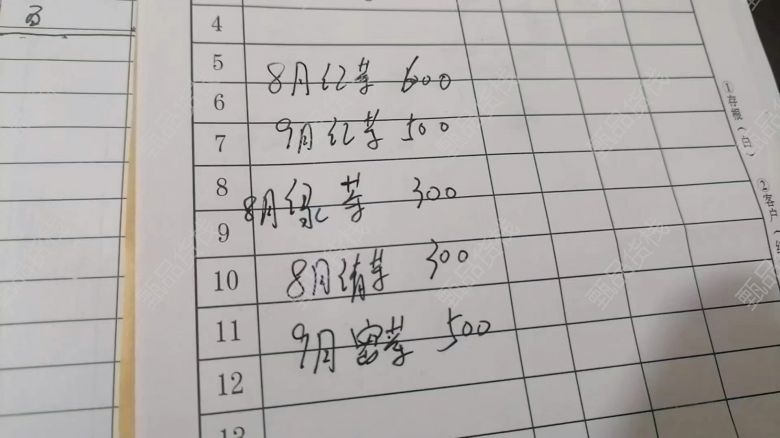 4
5
8月红芽 600
6
9月红芽 500
7
8
8月绿芽 300
9
8月清芽 300
10
11
9月密芽 500
12
13
①存根（白）
②客户（红
甄品货栈